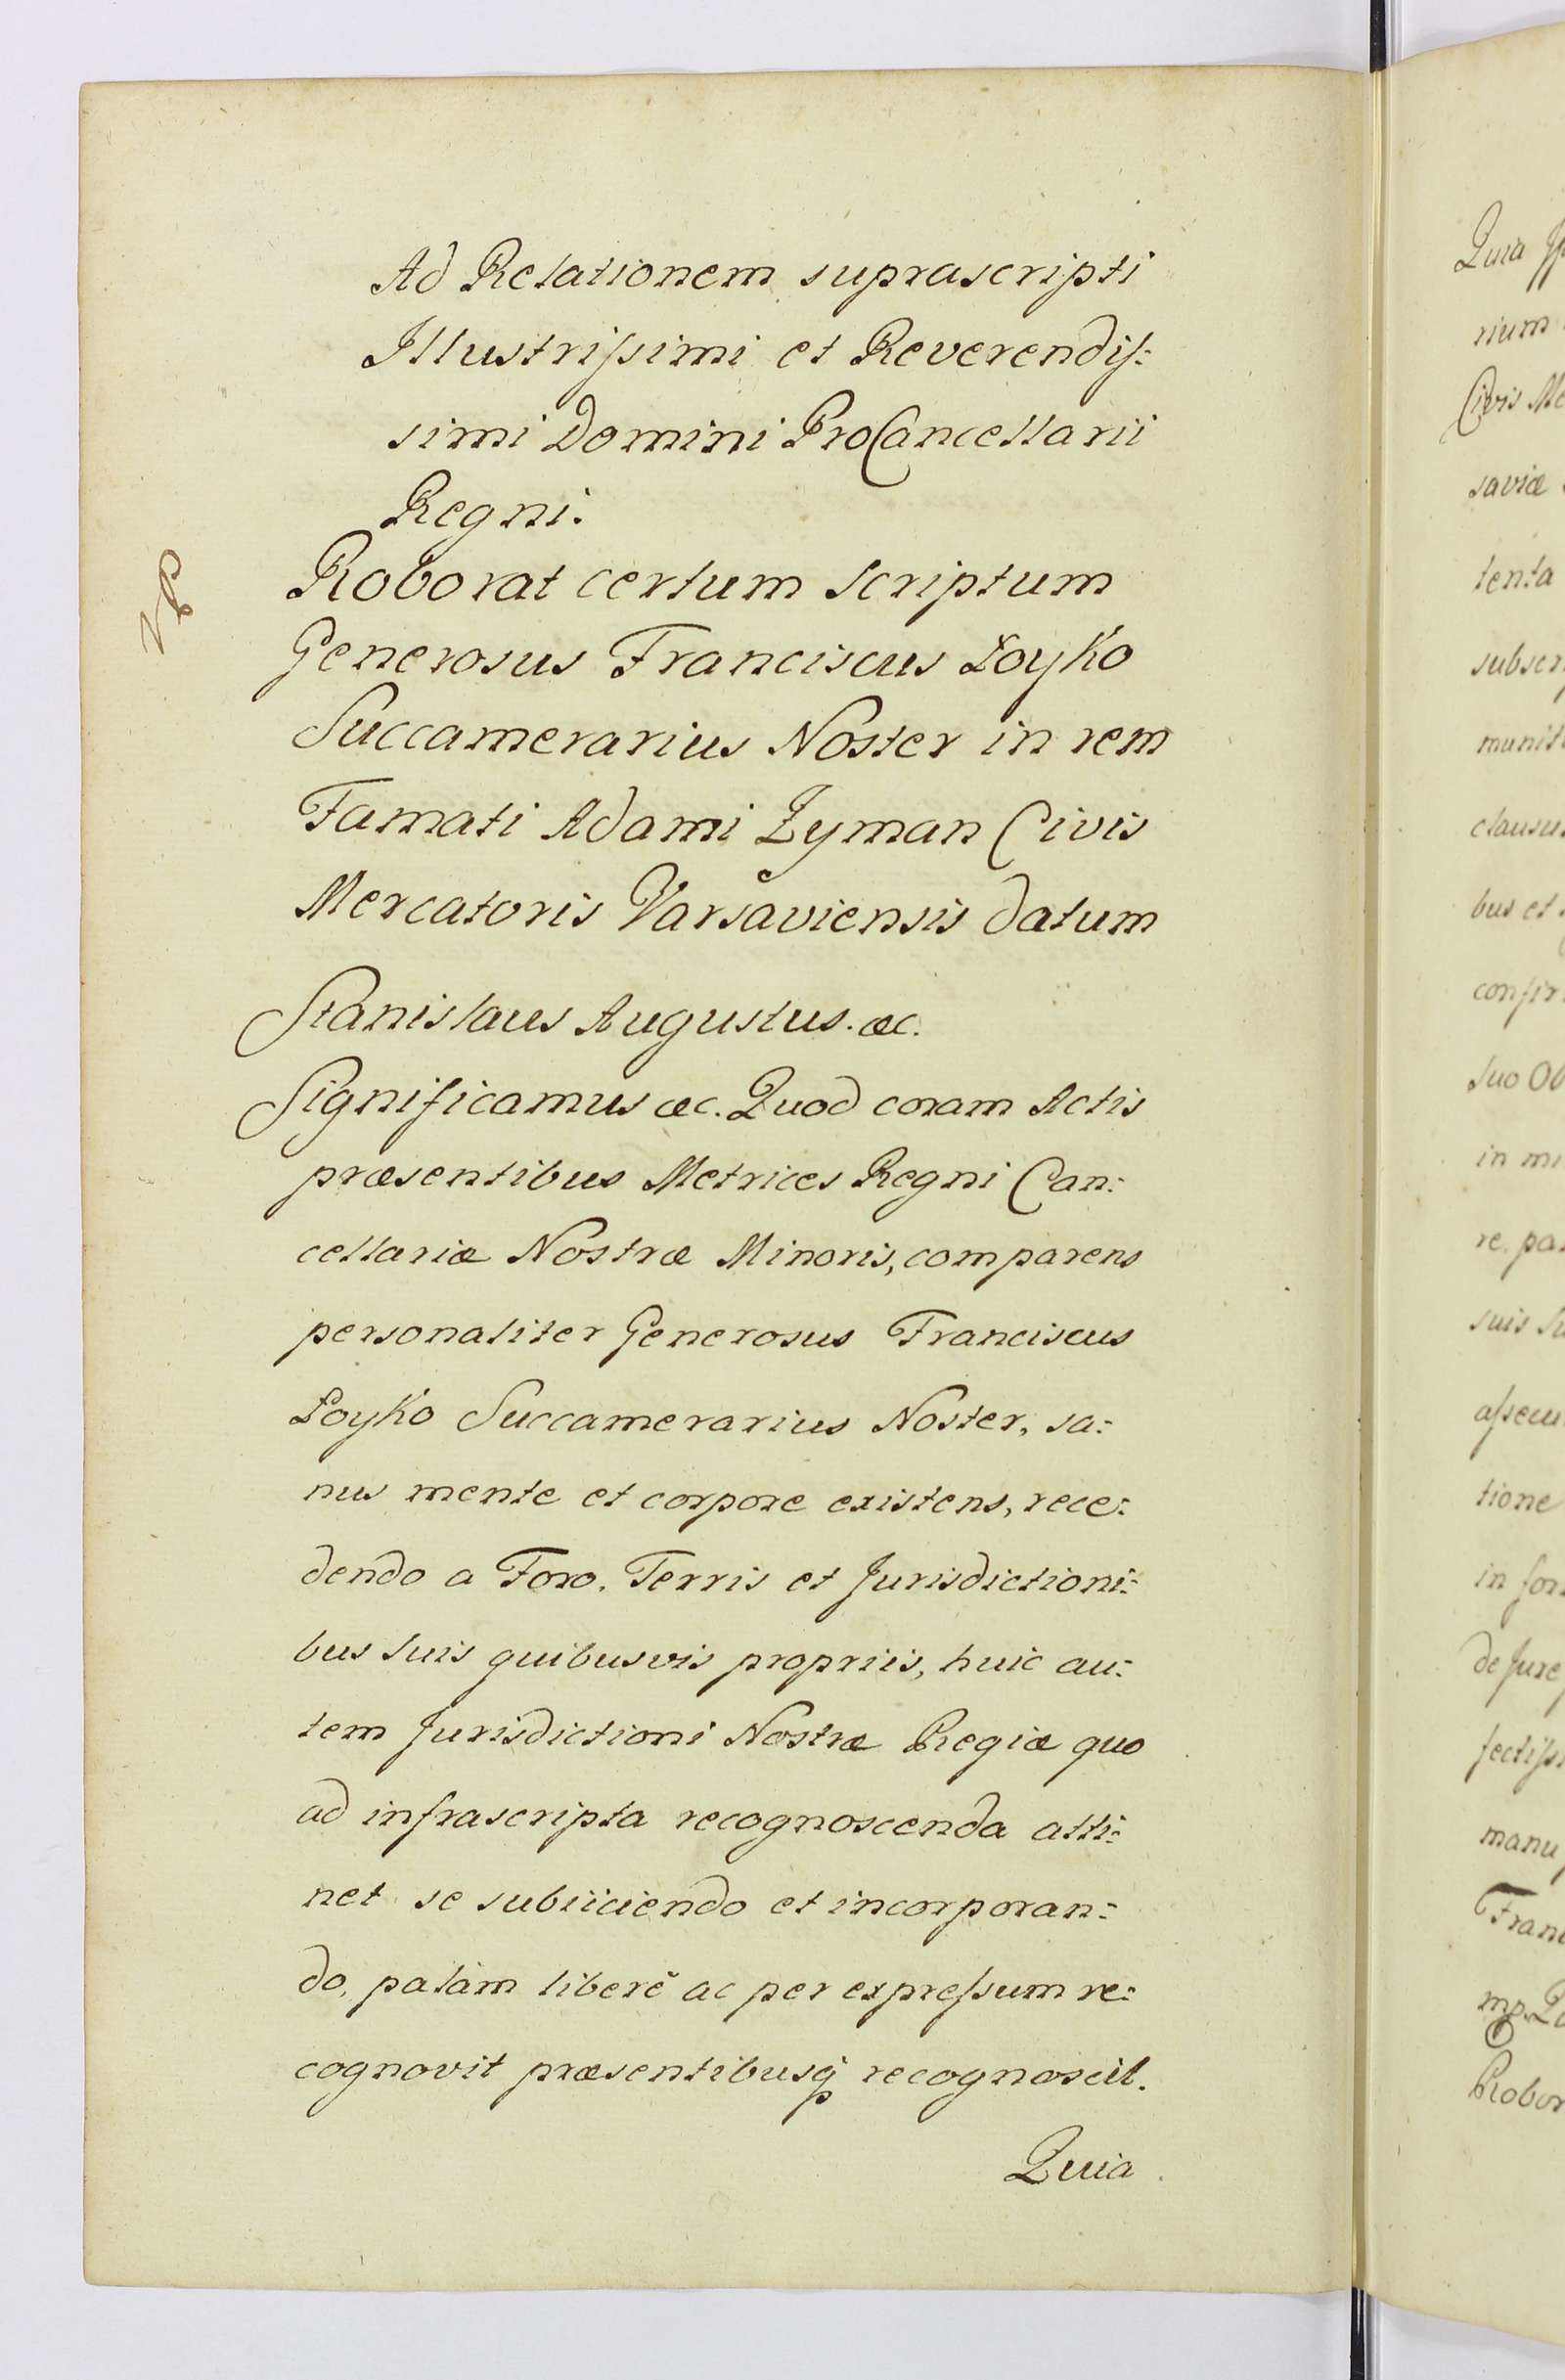 Ad Relationem suprascripti
Illustriſsimi et Reverendiſ:
simi Domini ProCancellarii
Regni.
Roborat certum scriptum
Generosus Franciscus Łoyko
Succamerarius Noster in rem
Famati Adami Zyman Civis
Mercatoris Varsaviensis datum
Stanislaus Augustus. &c.
Significamus &c. Quod coram Actis
præsentibus Metrices Regni Can:
cellariæ Nostræ Minoris, comparens
personaliter Generosus Franciscus
Łoyko Succamerarius Noster, sa:
nus mente et corpore existens, rece:
dendo a Foro, Terris et Jurisdictioni:
bus suis quibusvis propriis, huic au:
tem Jurisdictioni Nostræ Regiæ quo
ad infrascripta recognoscenda atti:
net se subiiciendo et incorporan:
do, palàm liberè ac per expreſsum re:
cognovit præsentibusq̃ recognoscit.
Quia
Quia
rium
Civis
saviæ
tenta
subscr
munit
clausu
bus et
confir
suo Ob
in mi
re, pa
suis Su
aſsecu
tione
in for
de Jure
fectiſs
manu
Fran
mp. Q
Robor